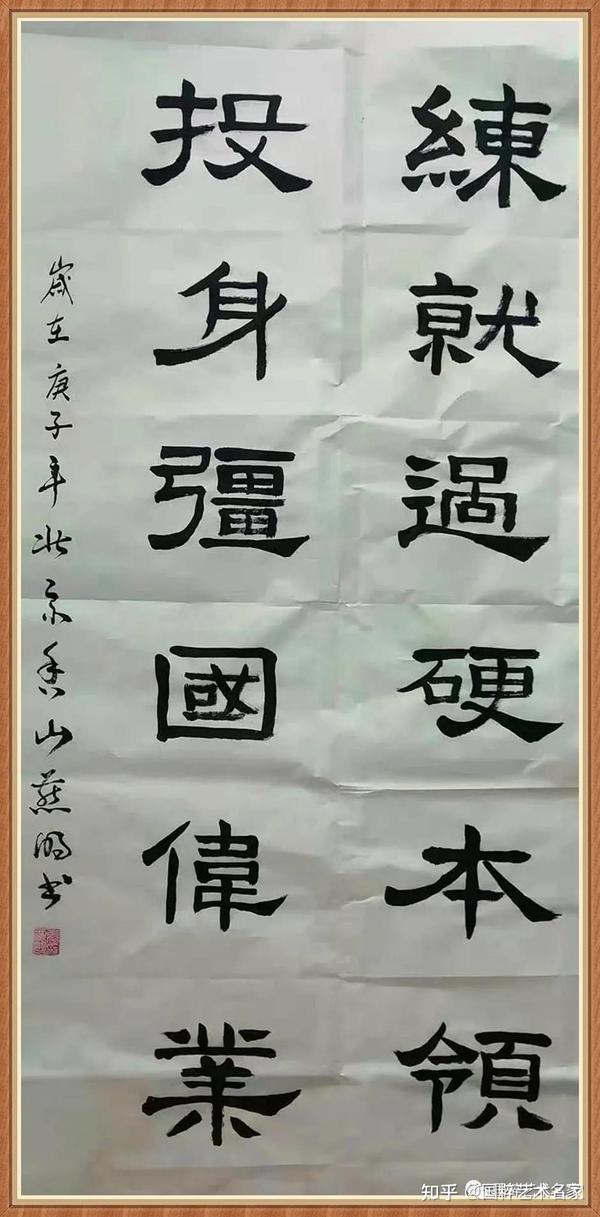 練就過硬本領
投身彊國偉業
歲在庚子年北京香山 书
知乎 @国粹艺术名家